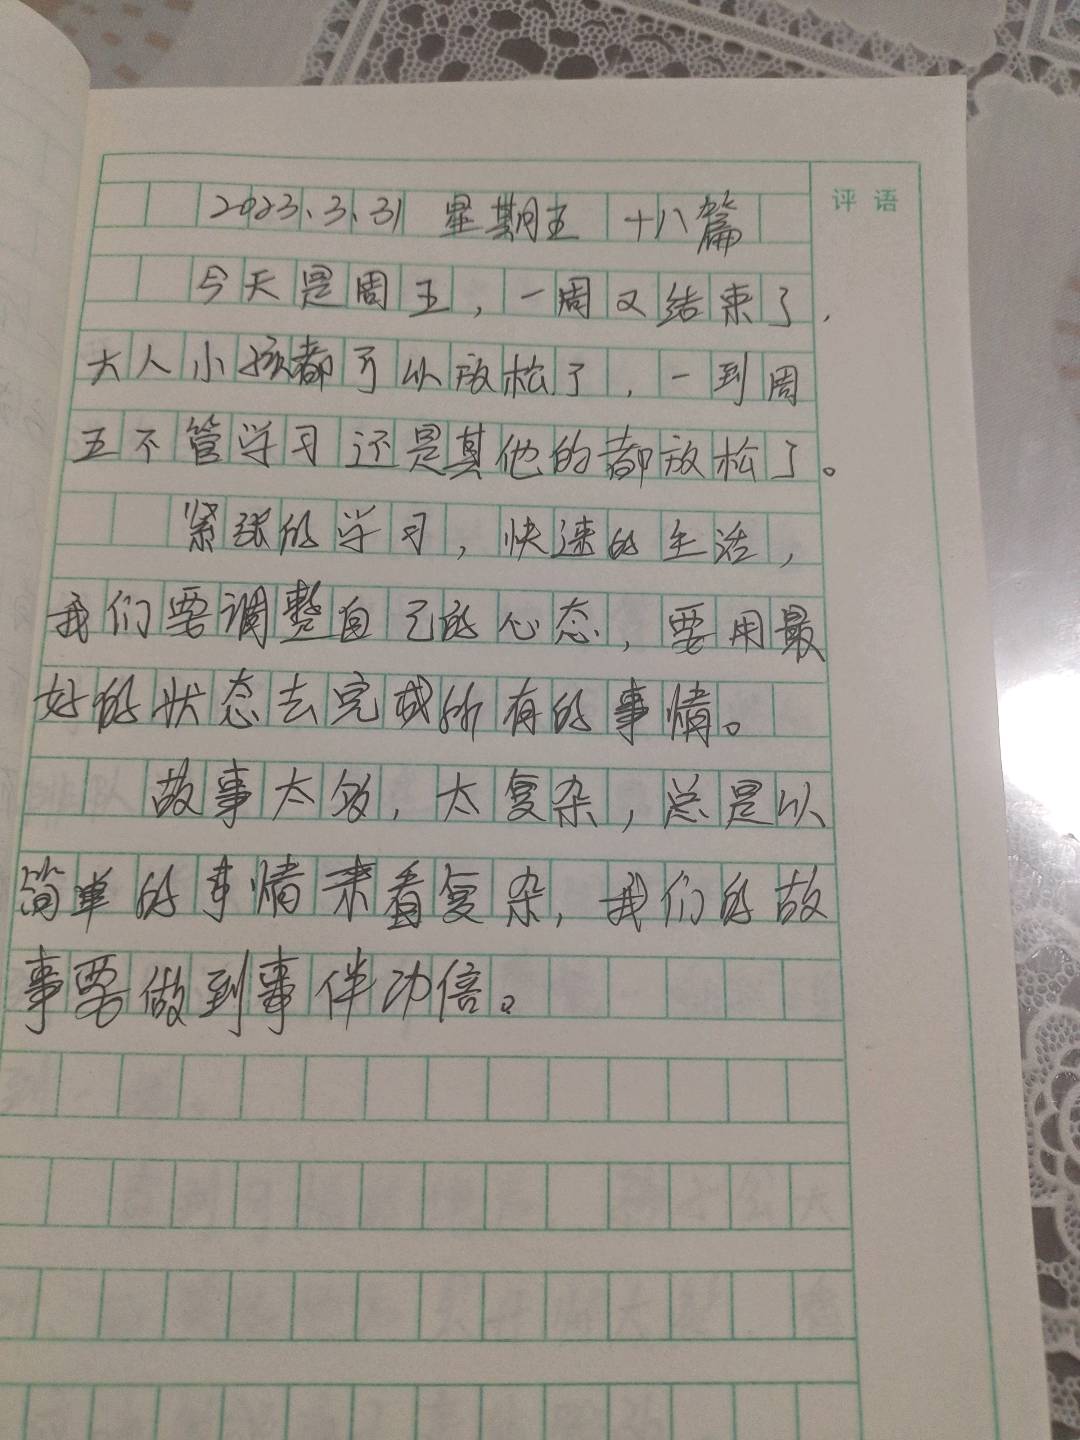 评语
2023、3、31 星期五 十八篇
今天是周五，一周又结束了，
大人小孩都可以放松了，一到周
五不管学习还是其他的都放松了。
紧张的学习，快速的生活，
我们要调整自己的心态，要用最
好的状态去完成所有的事情。
故事太多，太复杂，总是以
简单的事情来看复杂，我们的故
事要做到事伴功倍。